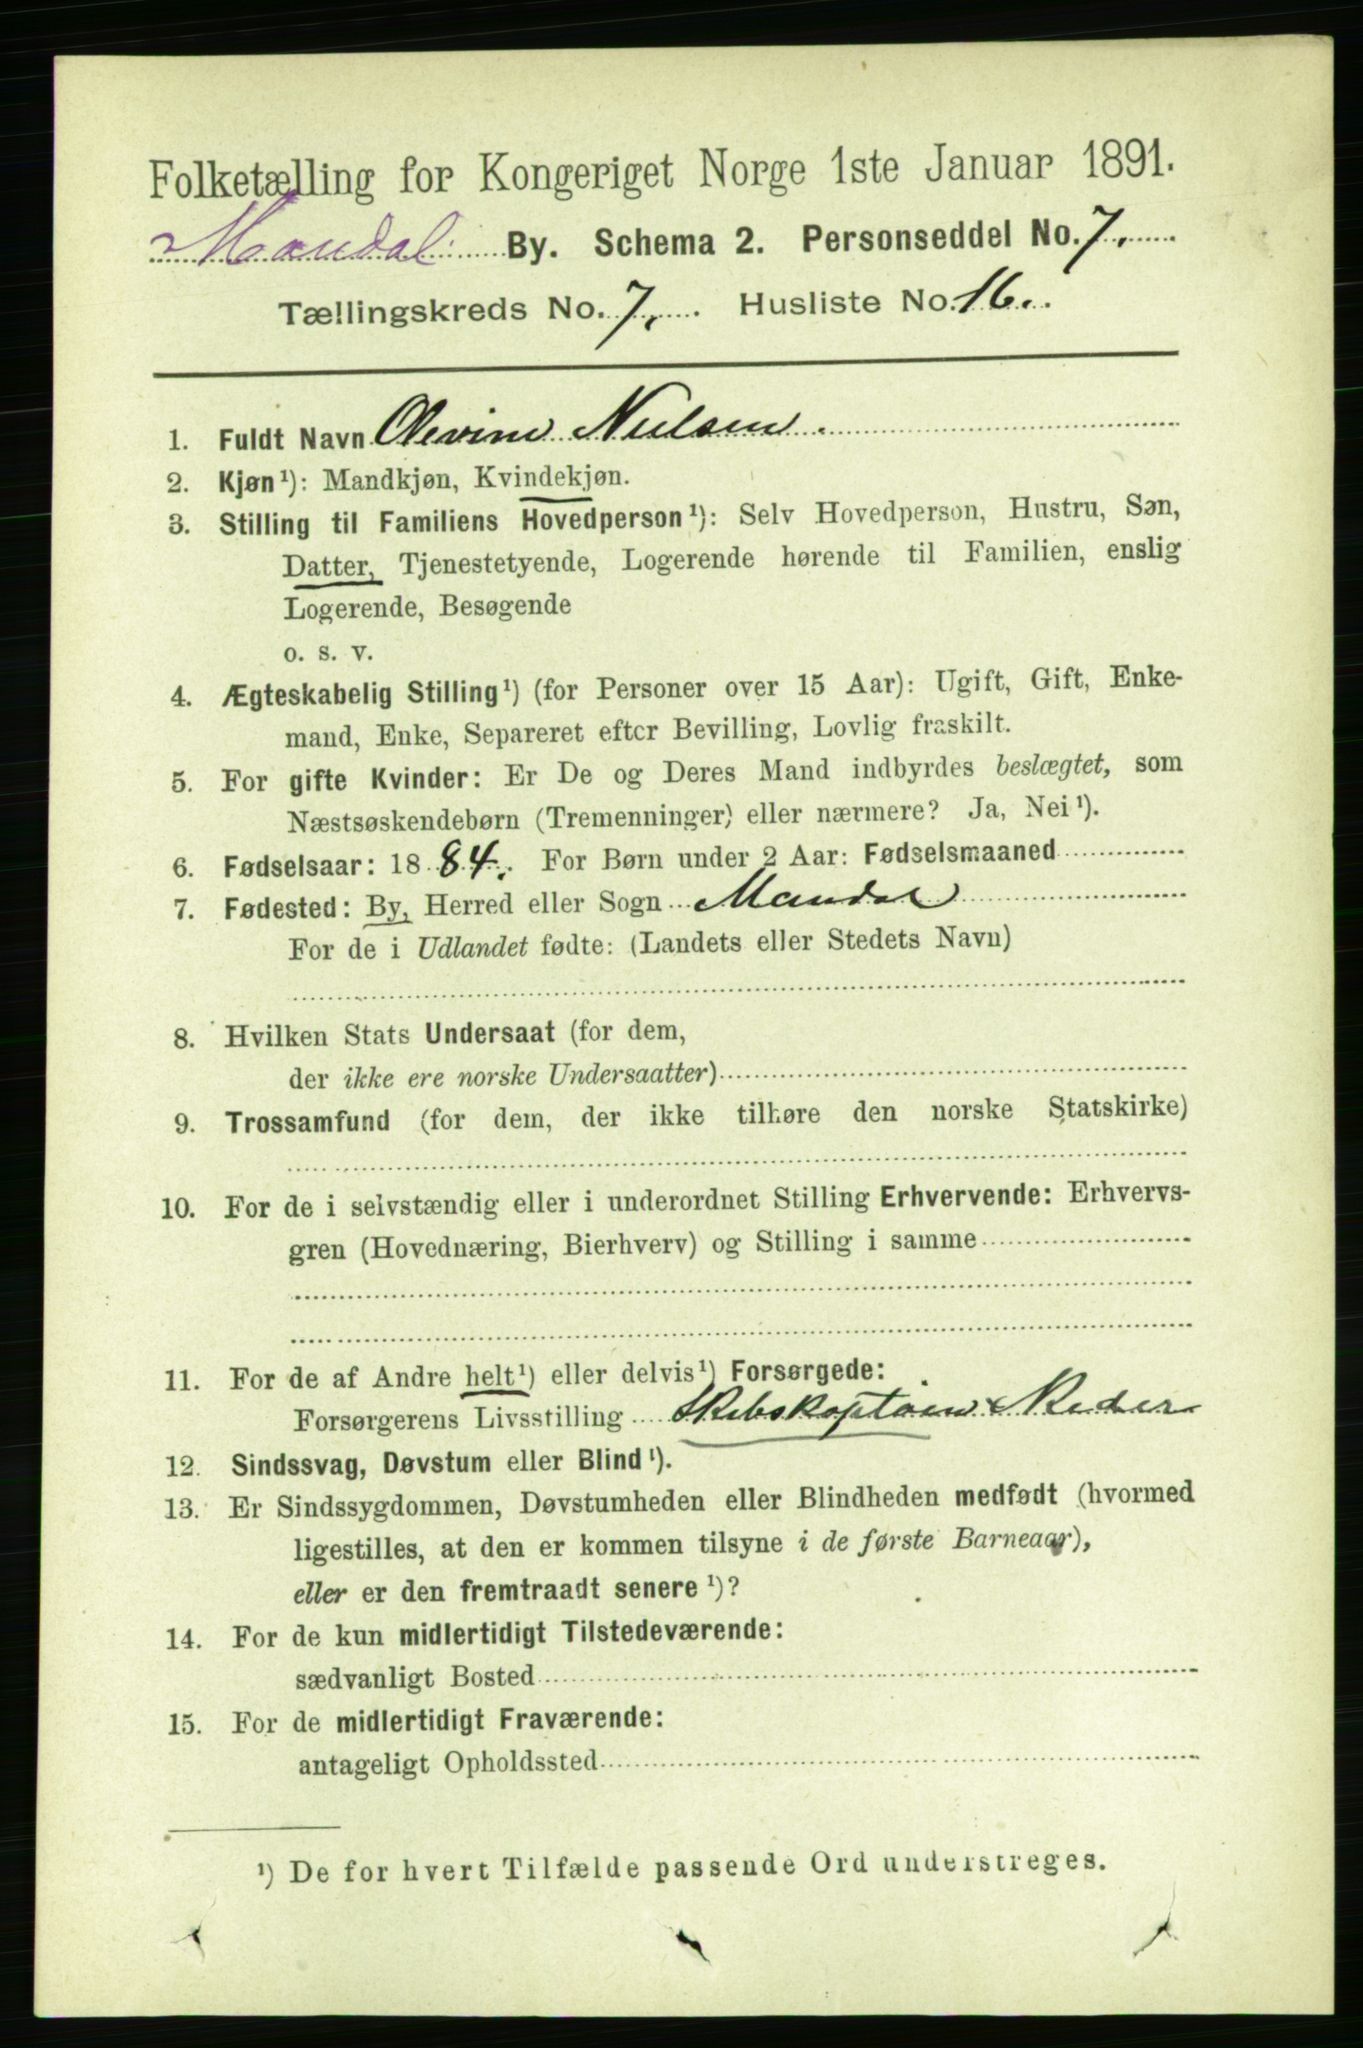 Folketælling for Kongeriget Norge 1ste Januar 1891.
Mandal By. Schema 2. Personseddel No. 7.
Tællingskreds No. 7. Husliste No. 16.
1. Fuldt Navn Olevine Nielsen.
2. Kjøn¹): Mandkjøn, Kvindekjøn.
3. Stilling til Familiens Hovedperson¹): Selv Hovedperson, Hustru, Søn,
Datter, Tjenestetyende, Logerende hørende til Familien, enslig
Logerende, Besøgende
o. s. v.
4. Ægteskabelig Stilling¹) (for Personer over 15 Aar): Ugift, Gift, Enke-
mand, Enke, Separeret efter Bevilling, Lovlig fraskilt.
5. For gifte Kvinder: Er De og Deres Mand indbyrdes beslægtet, som
Næstsøskendebørn (Tremenninger) eller nærmere? Ja, Nei¹).
6. Fødselsaar: 1884. For Børn under 2 Aar: Fødselsmaaned
7. Fødested: By, Herred eller Sogn Mandal
For de i Udlandet fødte: (Landets eller Stedets Navn)
8. Hvilken Stats Undersaat (for dem,
der ikke ere norske Undersaatter)
9. Trossamfund (for dem, der ikke tilhøre den norske Statskirke)
10. For de i selvstændig eller i underordnet Stilling Erhvervende: Erhvervs-
gren (Hovednæring, Bierhverv) og Stilling i samme
11. For de af Andre helt¹) eller delvis¹) Forsørgede:
Forsørgerens Livsstilling Skibskaptain & Reder
12. Sindssvag, Døvstum eller Blind¹).
13. Er Sindssygdommen, Døvstumheden eller Blindheden medfødt (hvormed
ligestilles, at den er kommen tilsyne i de første Barneaar),
eller er den fremtraadt senere¹)?
14. For de kun midlertidigt Tilstedeværende:
sædvanligt Bosted
15. For de midlertidigt Fraværende:
antageligt Opholdssted
¹) De for hvert Tilfælde passende Ord understreges.